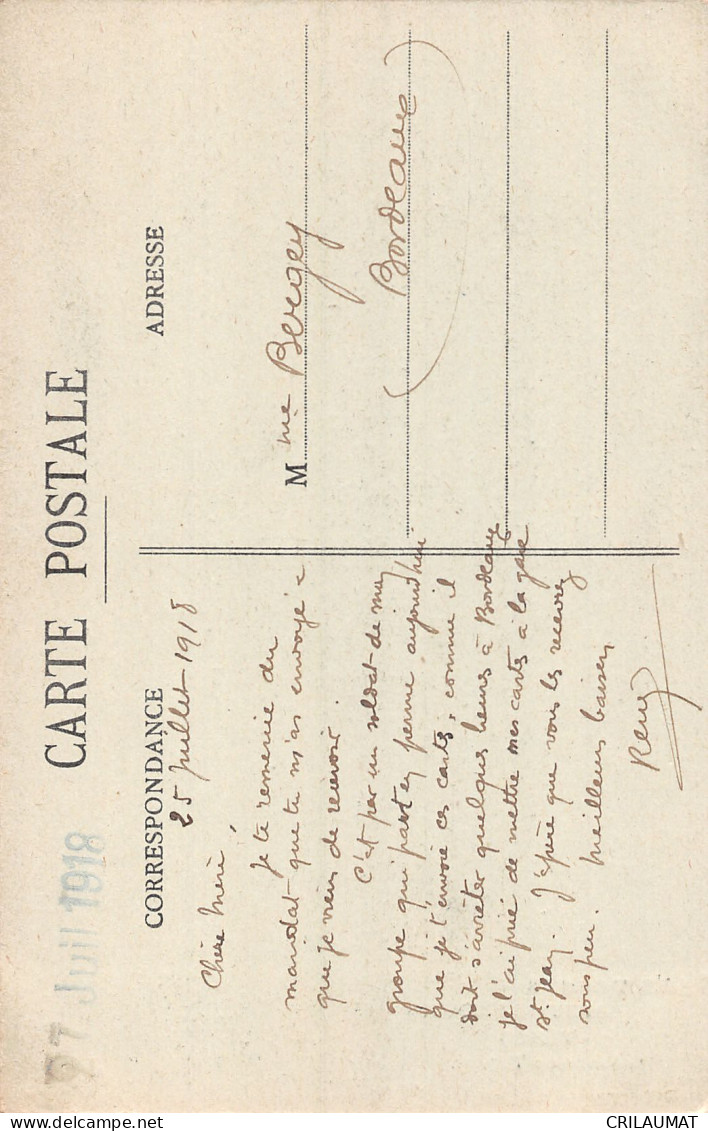 CARTE POSTALE
27 Juil 1918
CORRESPONDANCE
ADRESSE
25 Juillet 1918
Chère Mère,
Je te remercie du
mandat que tu m'as envoyé &
que je viens de recevoir.
C'est par un soldat de mon
groupe qui part en perme aujourd'hui
que je t'envoie ces cartes, comme il
doit s'arrêter quelques heures à Bordeaux
je l'ai prié de mettre mes cartes à la gare
St Jean. J'espère que vous les recevrez
sous peu. Meilleurs baisers
René
Mme Bergey
Bordeaux
CRILAUMAT